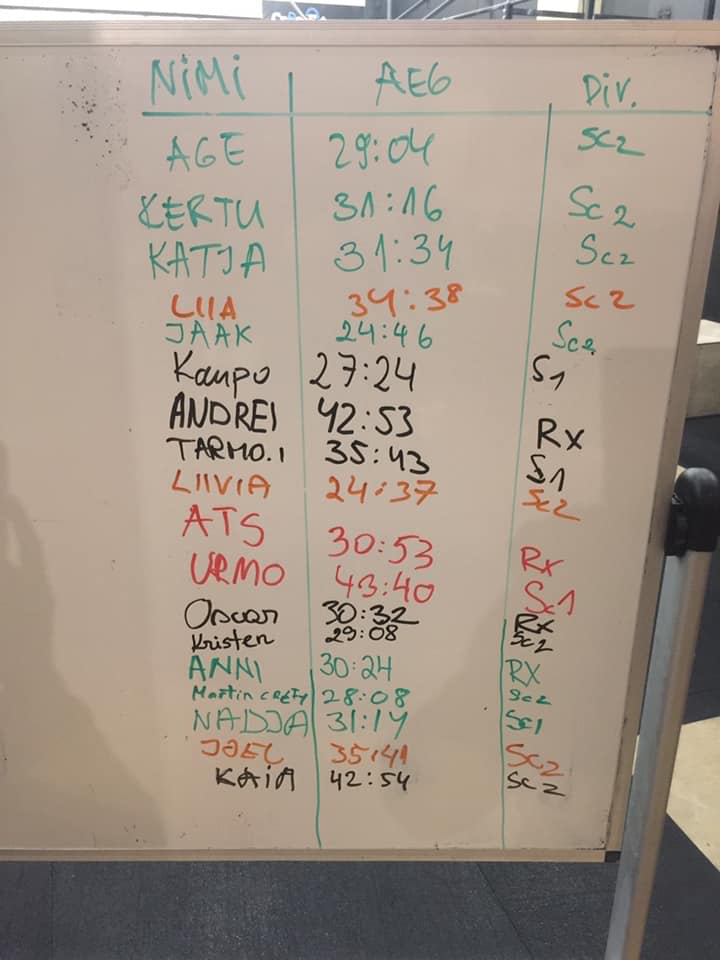 NiMi AEG Div.
AGE 29:04 Sc2
KERTU 31:16 Sc2
KATJA 31:34 Sc2
LIIA 34:38 Sc2
JAAK 24:46 Sc2
Kaupo 27:24 S1
ANDREI 42:53 Rx
TARMO.I 35:43 S1
LIIVIA 24:37 Sc2
ATS 30:53 Rx
URMO 43:40 Sc1
Oscar 30:32 Rx
Kristen 29:08 Sc2
ANNI 30:24 RX
Martin 28:08 Sc2
NADJA 31:14 Sc1
JOEL 35:41 Sc2
KAiA 42:54 SC2